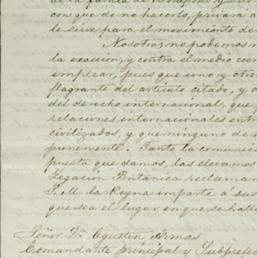 de la forma de
con que de no hacerlo, privará a
le sirve para el movimiento de
Nosotros no podemos m
la ocasion, y contra el medio con
emplear, pues que uno y otro
flagrante del articulo citado, y o
del derecho internacional, que
relaciones internacionales entr
civilizados, y que ninguno de e
ponernente. Tanto la comunic
puesta que damos, las elevamos
Legacion Britanica reclaman
S. M. la Reyna imparta á sus
que sea el lugar en que se halle
Señor Dn. Agustin Armas
Comandante principal y Subprefec